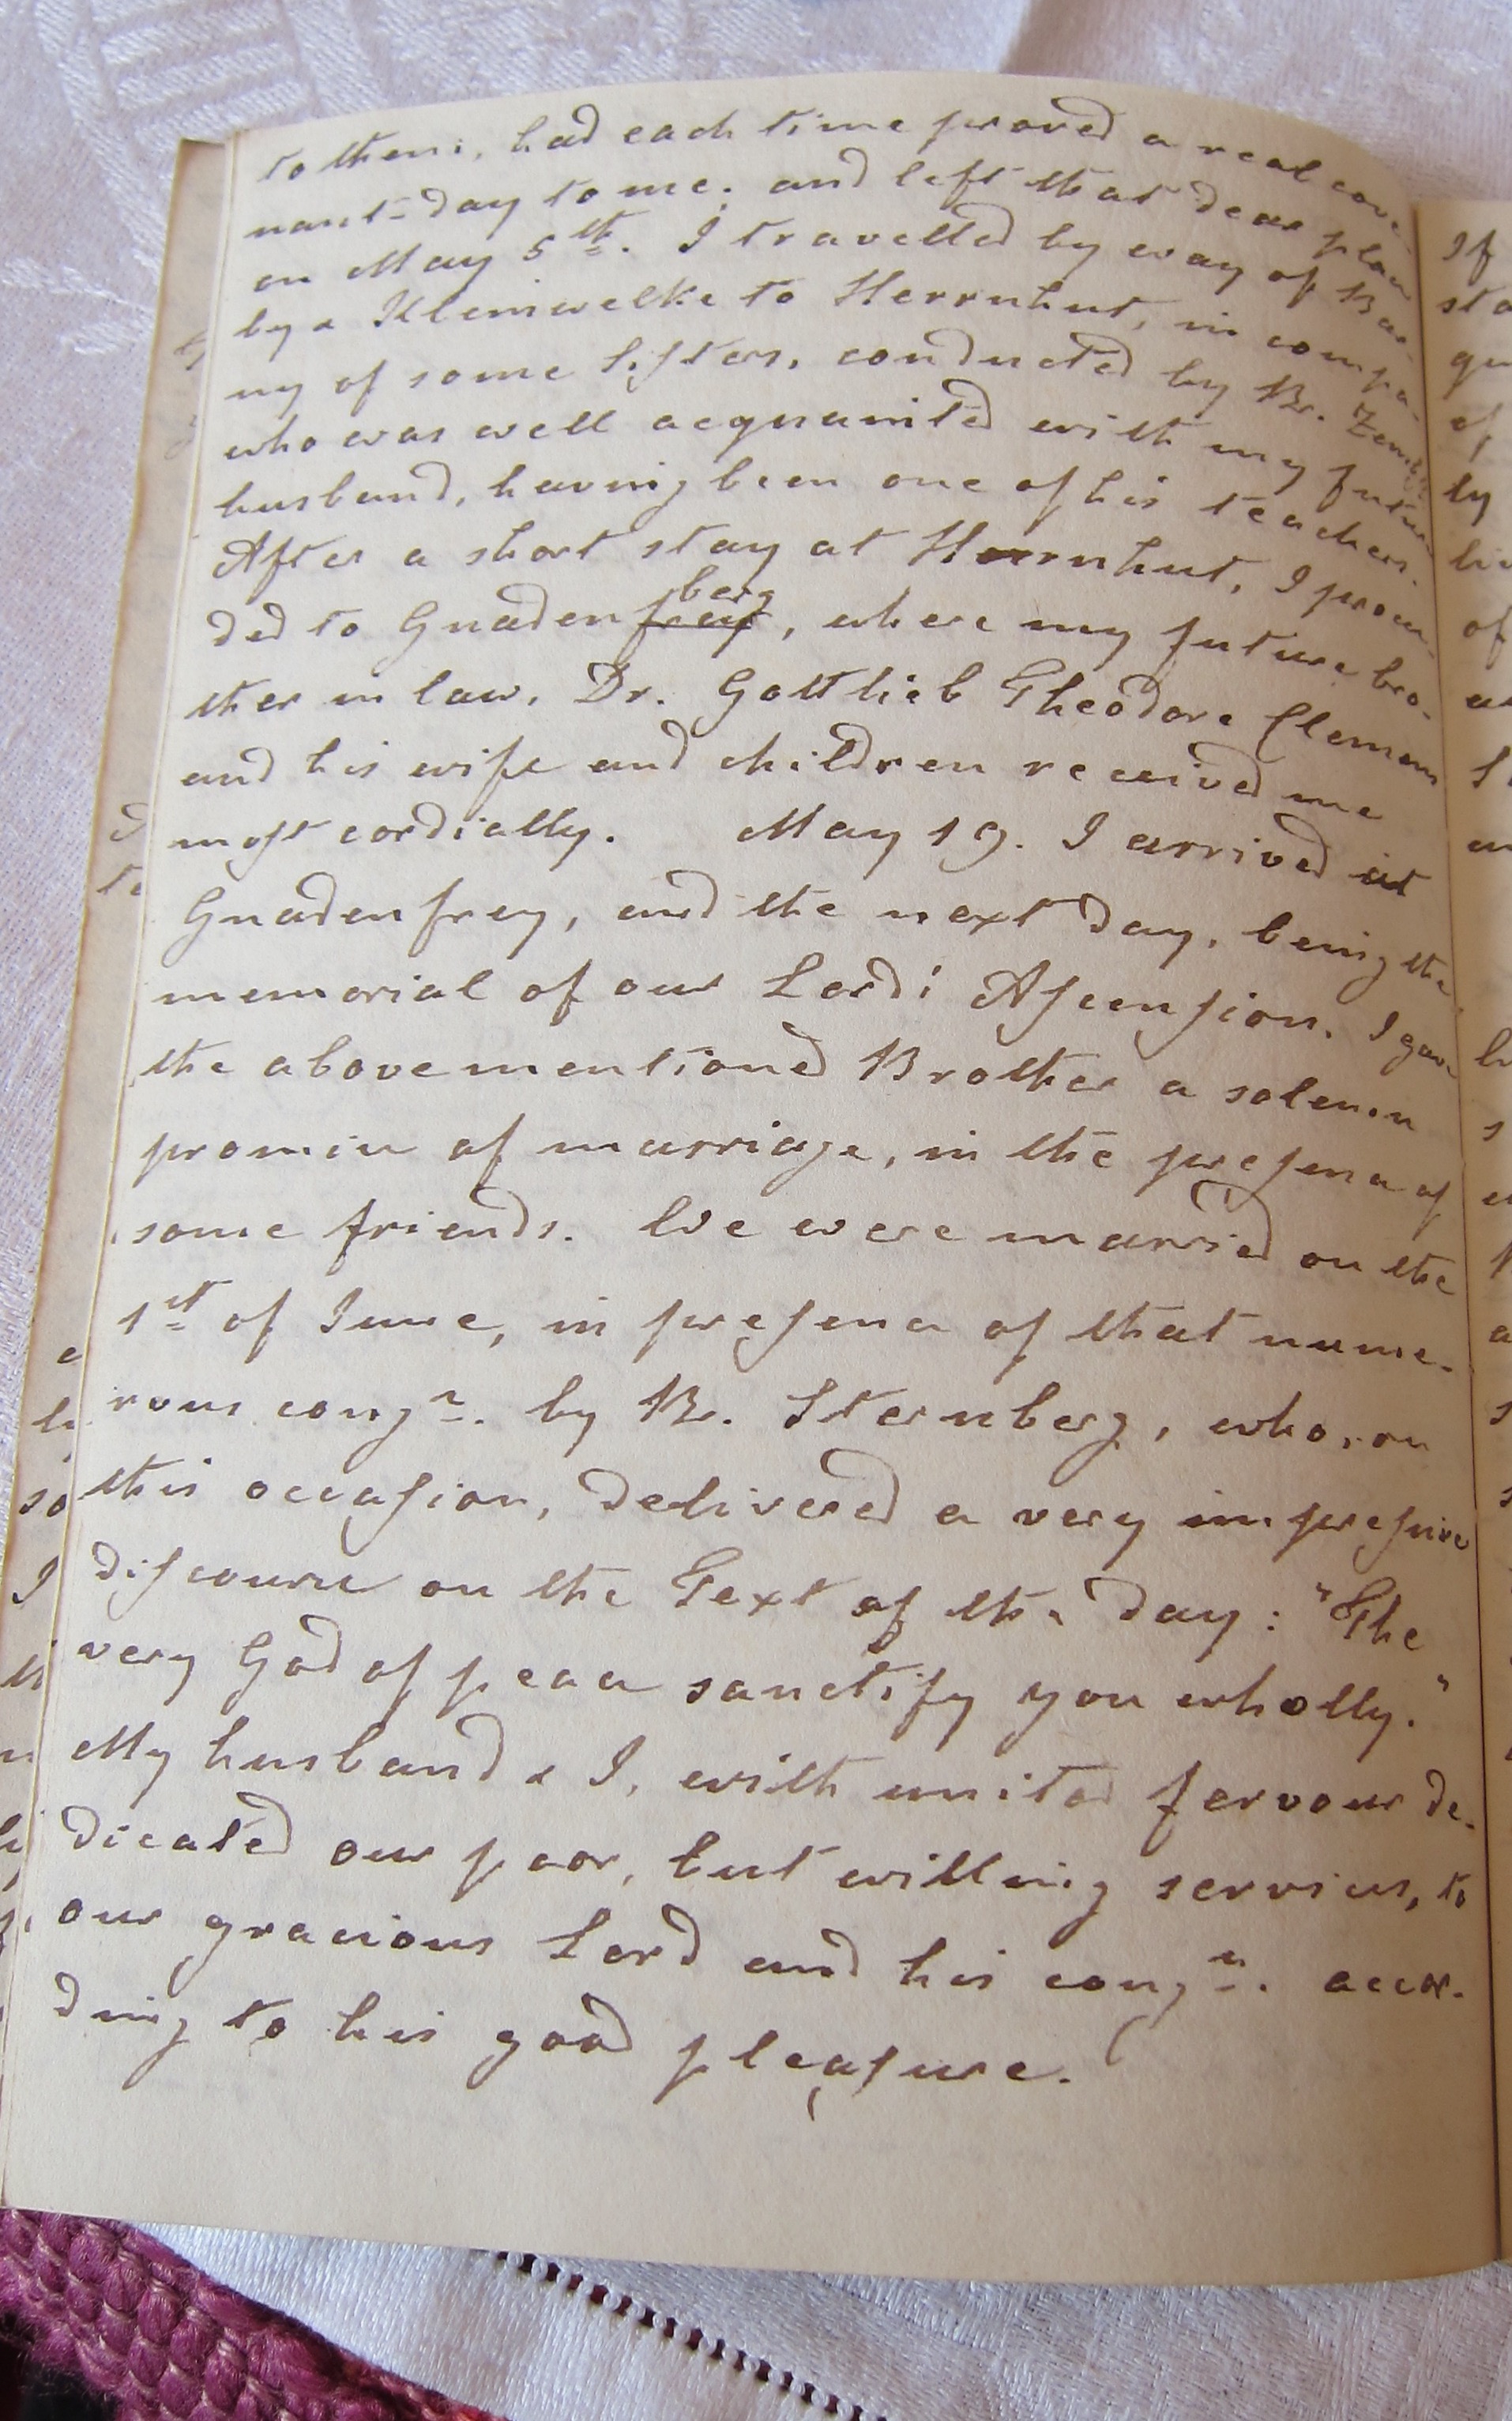 to them, had each time proved a real cove-
nant-day to me; and left that dear place
on May 5th. I travelled by way of Bar-
by & Kleinwelke to Herrnhut, in compa-
ny of some Sisters, conducted by Br.
who was well acquainted with my future
husband, having been one of his teachers.
After a short stay at Herrnhut, I procee-
ded to Gnadenfrey berg, where my future bro-
ther in law, Dr. Gottlieb Theodore Clemens
and his wife and children received me
most cordially. May 19. I arrived at
Gnadenfrey, and the next day, being the
memorial of our Lord's Ascension, I gave
the abovementioned Brother a solemn
promise of marriage, in the presence of
some friends. We were married on the
1st of June, in presence of that nume-
rous congn. by Br. Sternberg, who, on
this occasion, delivered a very impressive
discourse on the Text of the day: "The
very God of peace sanctify you wholly."
My husband & I, with united fervour de-
dicated our poor, but willing services, to
our gracious Lord and his congn. accor-
ding to his good pleasure.